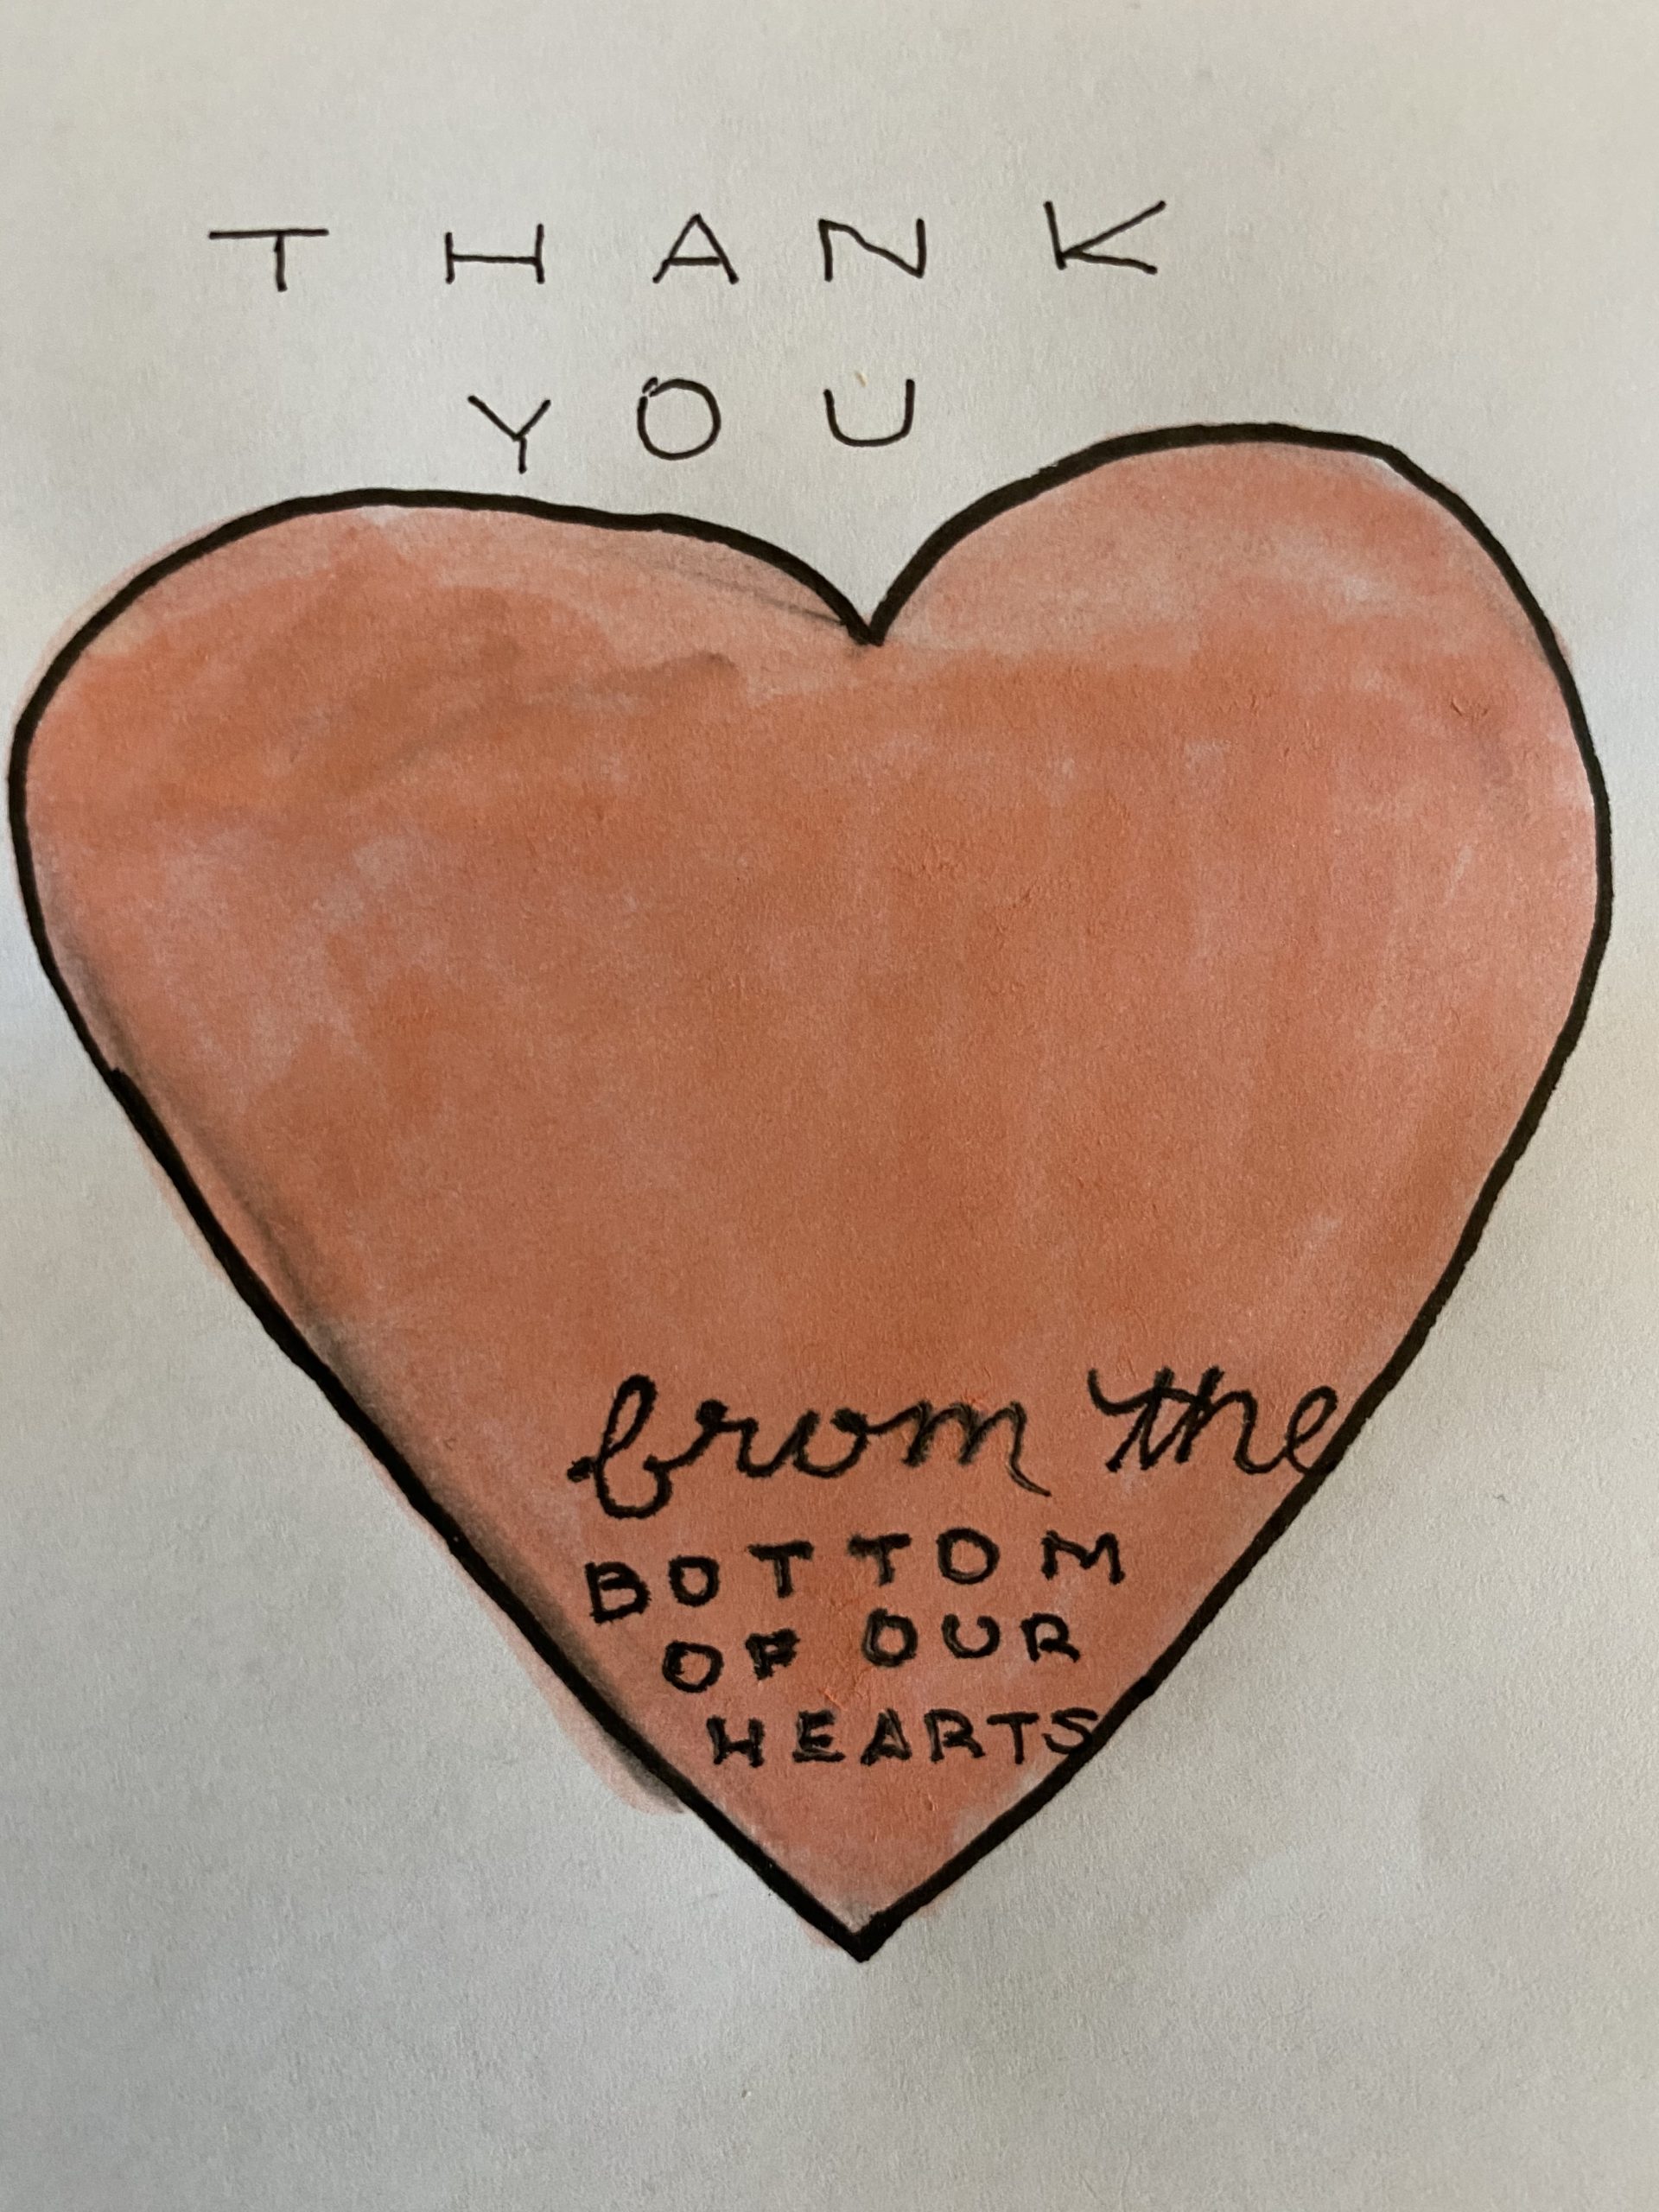 THANK
YOU
from the
BOTTOM
OF OUR
HEARTS